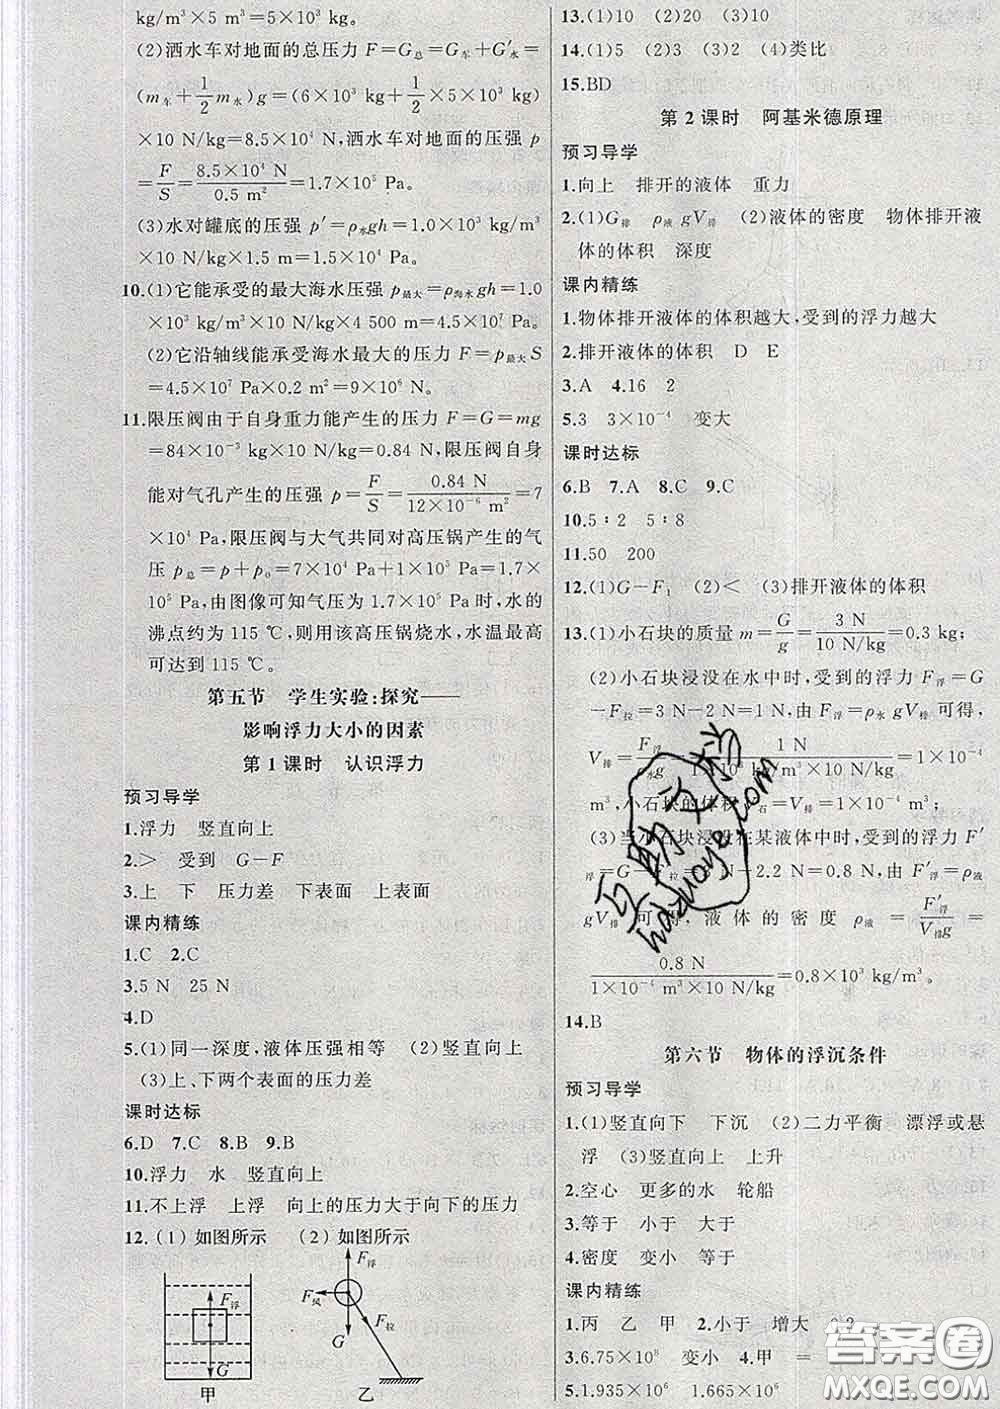 kg/m³×5 m³=5×10³ kg。
(2)洒水车对地面的总压力 F=G总=G车+G′水=
(m车+1/2 m水)g=(6×10³ kg+1/2×5×10³ kg)
×10 N/kg=8.5×10⁴ N,洒水车对地面的压强 p
=F/S=8.5×10⁴ N/0.5 m²=1.7×10⁵ Pa。
(3)水对罐底的压强 p′=ρ水gh=1.0×10³ kg/m³
×10 N/kg×1.5 m=1.5×10⁴ Pa。
10.(1)它能承受的最大海水压强 p最大=ρ海水gh=1.0
×10³ kg/m³×10 N/kg×4 500 m=4.5×10⁷ Pa。
(2)它沿轴线能承受海水最大的压力 F=p最大S
=4.5×10⁷ Pa×0.2 m²=9×10⁶ N。
11.限压阀由于自身重力能产生的压力 F=G=mg
=84×10⁻³ kg×10 N/kg=0.84 N,限压阀自身
能对气孔产生的压强 p=F/S=0.84 N/12×10⁻⁶ m²=7
×10⁴ Pa,限压阀与大气共同对高压锅产生的气
压 p总=p+p₀=7×10⁴ Pa+1×10⁵ Pa=1.7×
10⁵ Pa,由图像可知气压为 1.7×10⁵ Pa时,水的
沸点约为 115 ℃,则用该高压锅烧水,水温最高
可达到 115 ℃。
第五节 学生实验:探究——
影响浮力大小的因素
第 1 课时 认识浮力
预习导学
1.浮力 竖直向上
2.> 受到 G-F
3.上 下 压力差 下表面 上表面
课内精练
1.C 2.C
3.5 N 25 N
4.D
5.(1)同一深度,液体压强相等 (2)竖直向上
(3)上、下两个表面的压力差
课时达标
6.D 7.C 8.B 9.B
10.浮力 水 竖直向上
11.不上浮 上浮 向上的压力大于向下的压力
12.(1)如图所示 (2)如图所示
F浮
G
甲
F浮
F风
F拉
G
乙
13.(1)10 (2)20 (3)10
14.(1)5 (2)3 (3)2 (4)类比
15.BD
第 2 课时 阿基米德原理
预习导学
1.向上 排开的液体 重力
2.(1)G排 ρ液 gV排 (2)液体的密度 物体排开液
体的体积 深度
课内精练
1.物体排开液体的体积越大,受到的浮力越大
2.排开液体的体积 D E
3.A 4.16 2
5.3 3×10⁻⁴ 变大
课时达标
6.B 7.A 8.C 9.C
10.5∶2 5∶8
11.50 200
12.(1)G-F₁ (2)< (3)排开液体的体积
13.(1)小石块的质量 m=G/g=3 N/10 N/kg=0.3 kg;
(2)小石块浸没在水中时,受到的浮力 F浮=G
-F拉=3 N-2 N=1 N,由 F浮=ρ水 gV排可得,
V排=F浮/ρ水g=1 N/1.0×10³ kg/m³×10 N/kg=1×10⁻⁴
m³,小石块的体积 V石=V排=1×10⁻⁴ m³;
(3)当小石块浸没在某液体中时,受到的浮力 F′
浮=G-F′拉=3 N-2.2 N=0.8 N,由 F′浮=ρ液
gV排 可得,液体的密度 ρ液=F′浮/V排g=
0.8 N/1×10⁻⁴ m³×10 N/kg=0.8×10³ kg/m³。
14.B
第六节 物体的浮沉条件
预习导学
1.(1)竖直向下 下沉 (2)二力平衡 漂浮或悬
浮 (3)竖直向上 上升
2.空心 更多的水 轮船
3.等于 小于 大于
4.密度 变小 等于
课内精练
1.丙 乙 甲 2.小于 增大 0.2
3.6.75×10⁸ 变小 4.甲 =
5.1.935×10⁶ 1.665×10⁶
互助文档
hdzuoye.com
答案圈
MXQE.COM